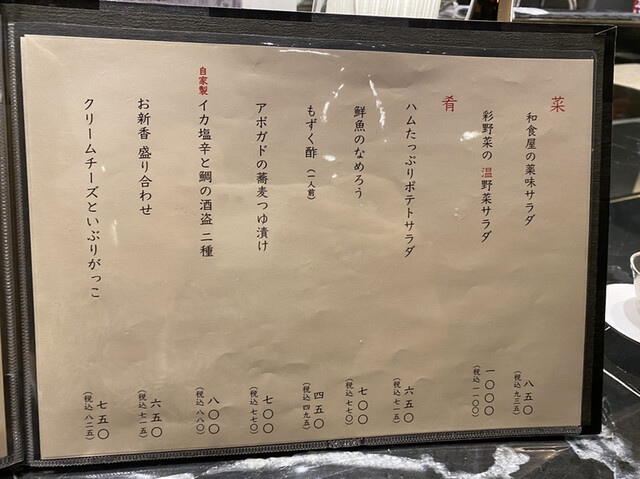 菜
和食屋の薬味サラダ 八五〇
(税込 九三五)
彩野菜の 温野菜サラダ 一〇〇〇
(税込 一一〇〇)
肴
ハムたっぷりポテトサラダ 六五〇
(税込 七一五)
鮮魚のなめろう 七〇〇
(税込 七七〇)
もずく酢 (一人前) 四五〇
(税込 四九五)
アボガドの蕎麦つゆ漬け 七〇〇
(税込 七七〇)
自家製 イカ塩辛と鯛の酒盗 二種 八〇〇
(税込 八八〇)
お新香 盛り合わせ 六五〇
(税込 七一五)
クリームチーズといぶりがっこ 七五〇
(税込 八二五)